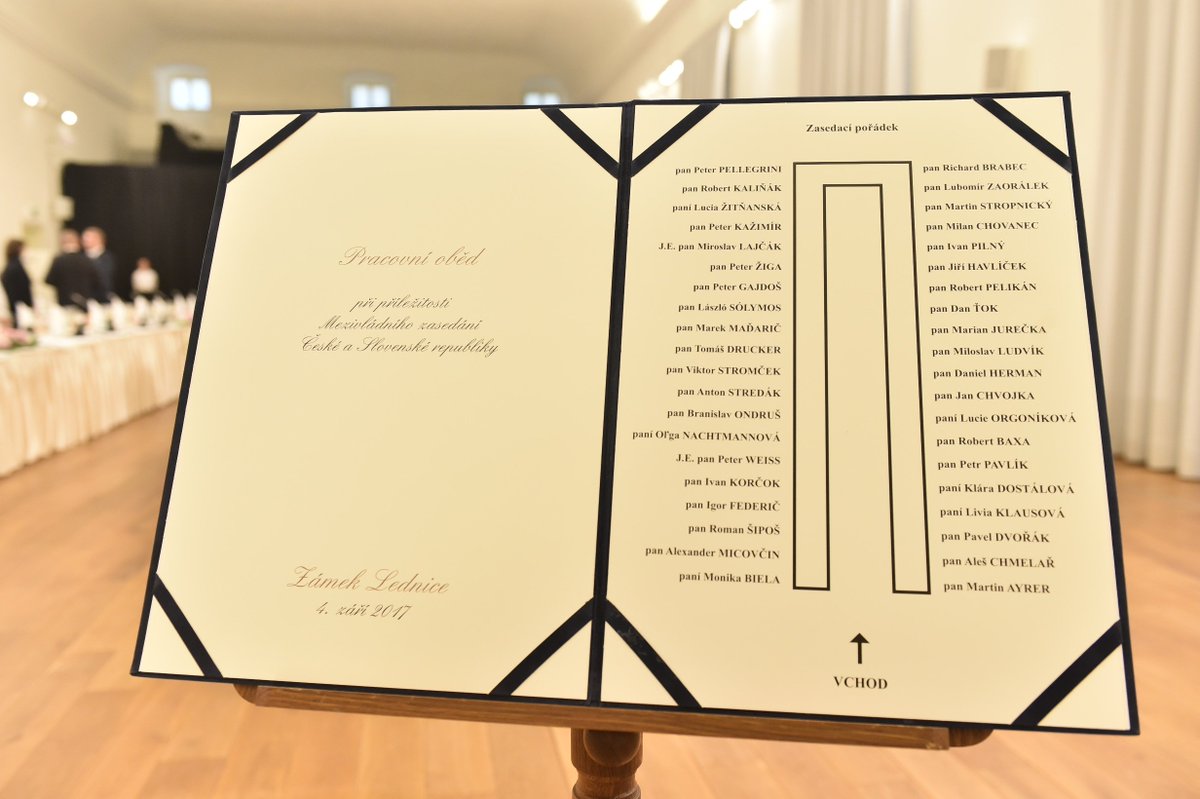 Pracovní oběd
při příležitosti
Mezivládního zasedání
České a Slovenské republiky
Zámek Lednice
4. září 2017
Zasedací pořádek
pan Peter PELLEGRINI
pan Robert KALIŇÁK
paní Lucia ŽITŇANSKÁ
pan Peter KAŽIMÍR
J.E. pan Miroslav LAJČÁK
pan Peter ŽIGA
pan Peter GAJDOŠ
pan László SÓLYMOS
pan Marek MAĎARIČ
pan Tomáš DRUCKER
pan Viktor STROMČEK
pan Anton STREDÁK
pan Branislav ONDRUŠ
paní Oľga NACHTMANNOVÁ
J.E. pan Peter WEISS
pan Ivan KORČOK
pan Igor FEDERIČ
pan Roman ŠIPOŠ
pan Alexander MICOVČIN
paní Monika BIELA
pan Richard BRABEC
pan Lubomír ZAORÁLEK
pan Martin STROPNICKÝ
pan Milan CHOVANEC
pan Ivan PILNÝ
pan Jiří HAVLÍČEK
pan Robert PELIKÁN
pan Dan ŤOK
pan Marian JUREČKA
pan Miloslav LUDVÍK
pan Daniel HERMAN
pan Jan CHVOJKA
paní Lucie ORGONÍKOVÁ
pan Robert BAXA
pan Petr PAVLÍK
paní Klára DOSTÁLOVÁ
paní Livia KLAUSOVÁ
pan Pavel DVOŘÁK
pan Aleš CHMELAŘ
pan Martin AYRER
VCHOD